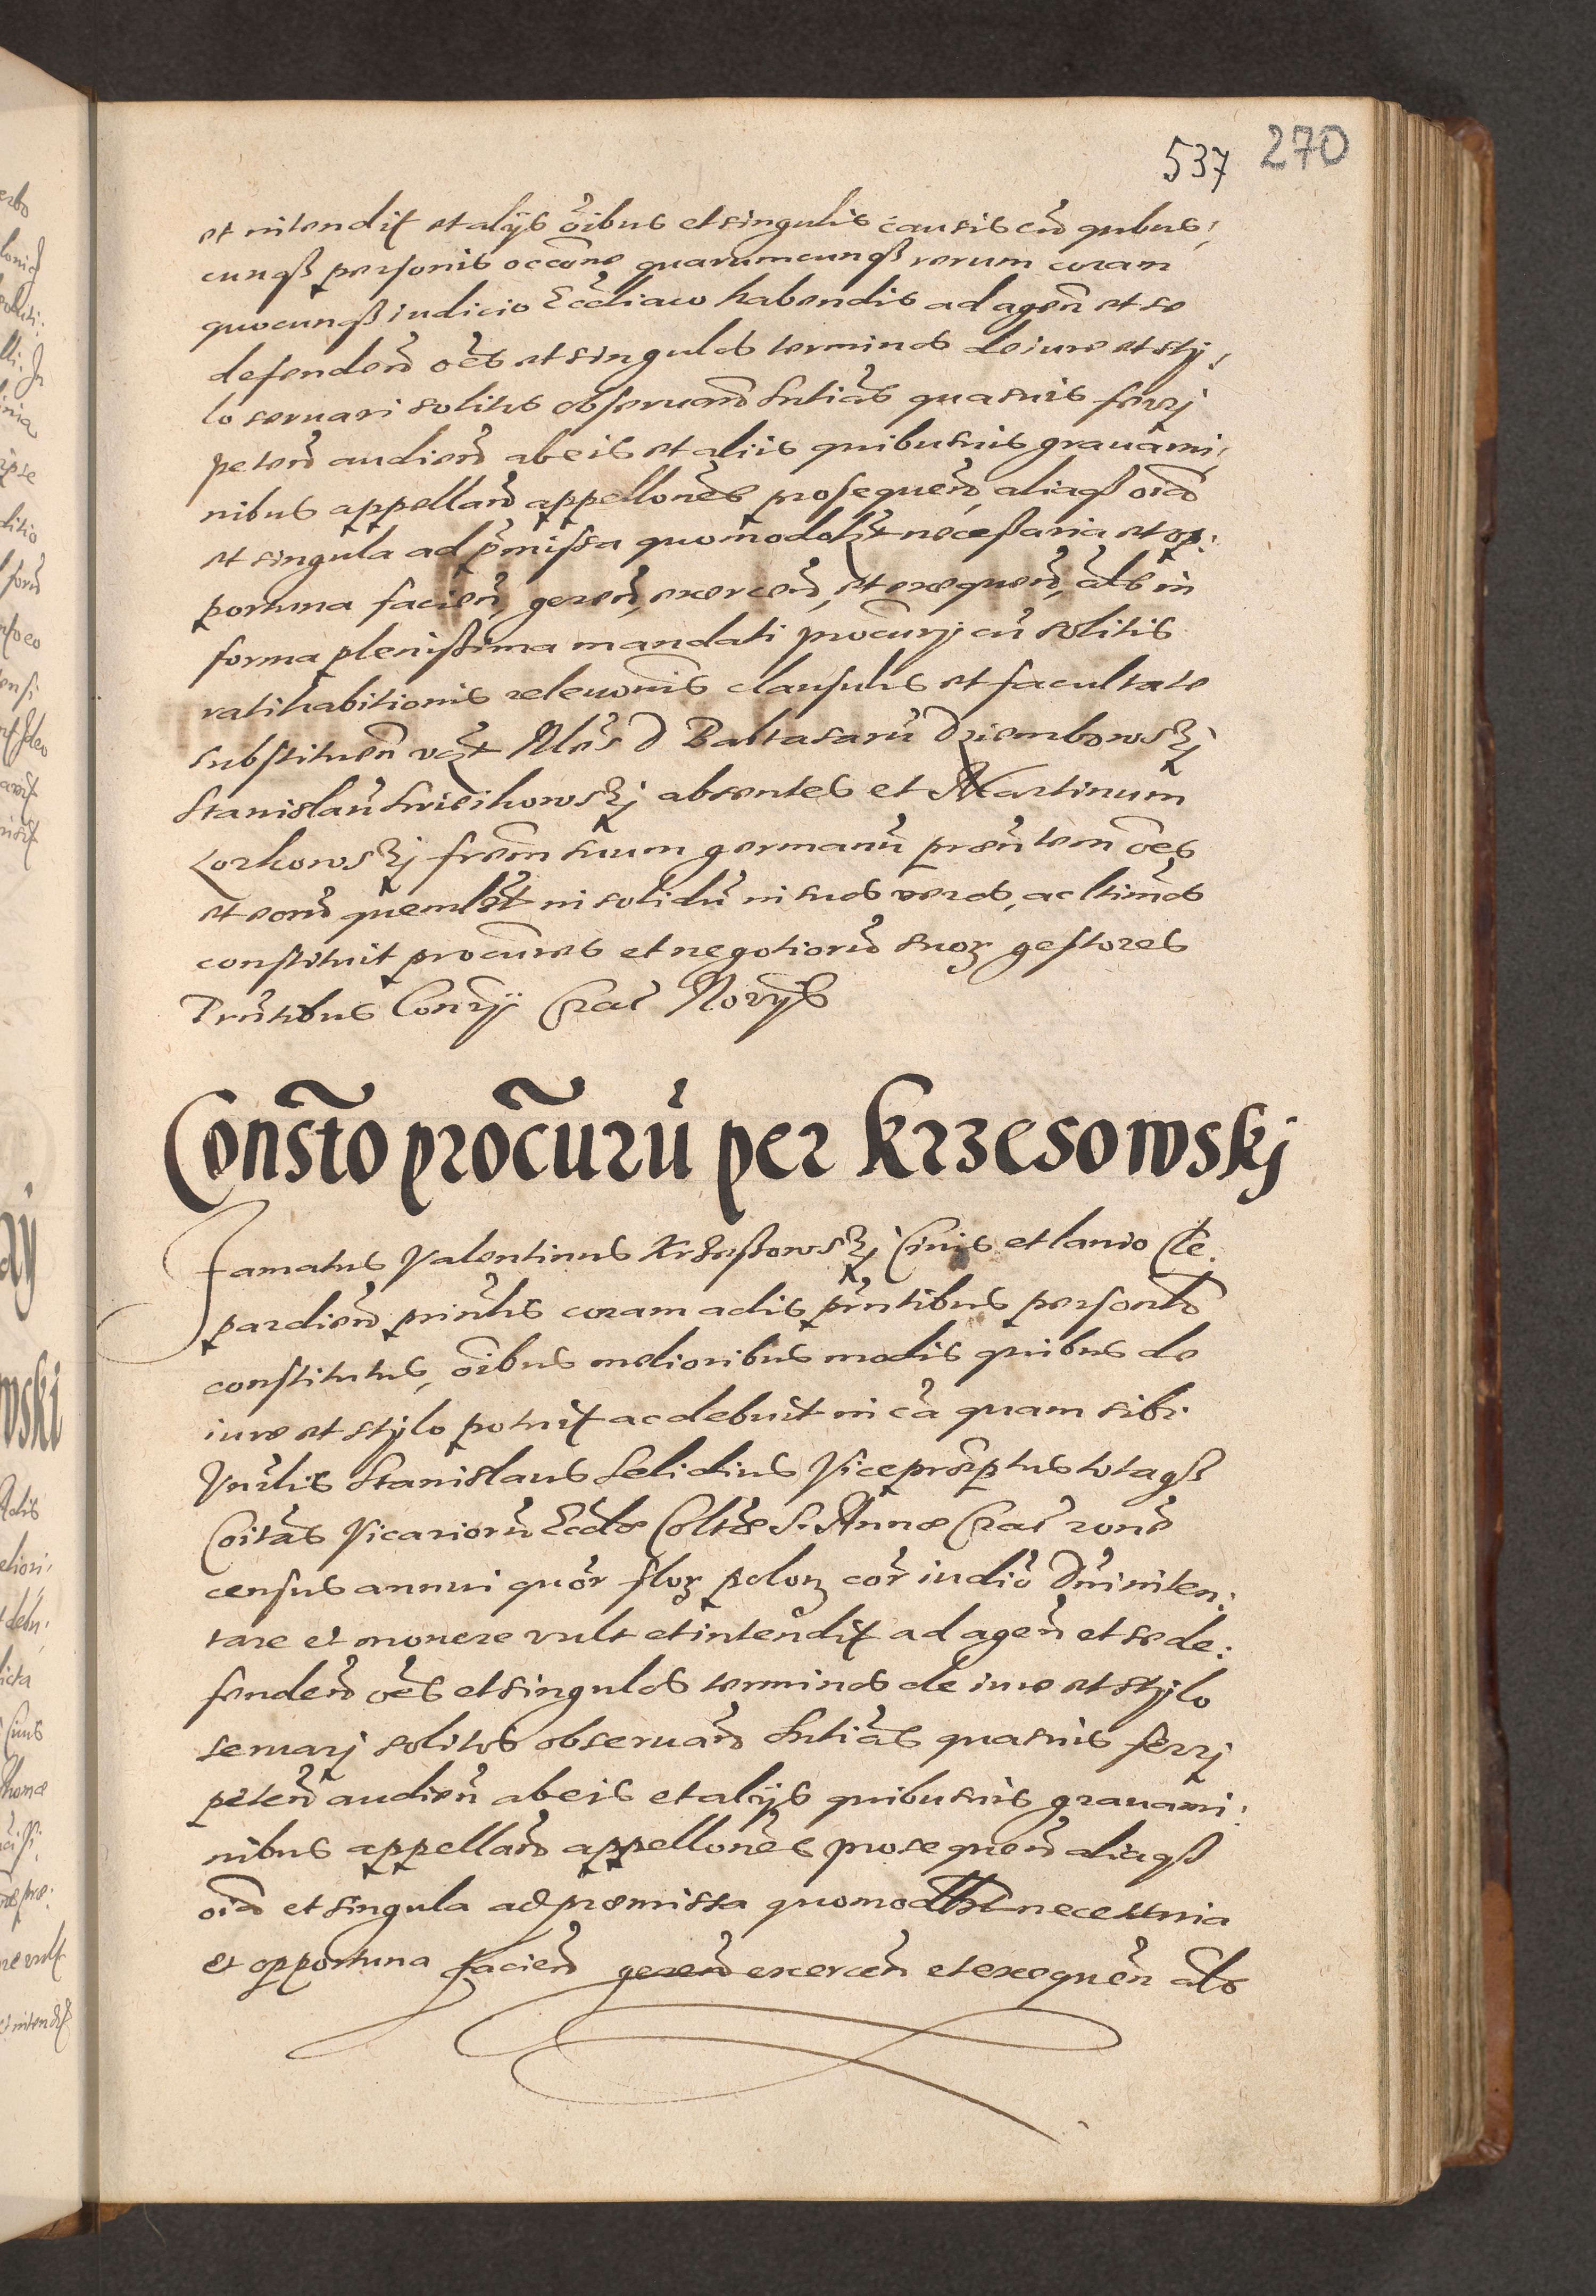 537 270
et intendit et alijs o͠ibus et singulis causis cu͠ quibus,
cunqȝ personis occõne quarumcunqȝ rerum coram
quocunqȝ iudicio Eccl͠iaco habendis ad agen͠ et se
defenden͠ oe͠s et singulos terminos de iure et sty,
lo seruari solitos obseruan͠ Sn͠tias quasuis ferrj
peten͠ audien͠ ab eis et aliis quibusuis grauami,
nibus appellan͠ appello͠nes prosequen͠, aliaqȝ oi͠a
et singula ad pr͠missa quomodolȝt necessaria et op:
portuna facien͠, geren͠, exercen͠, et exequen͠, al͠s in
forma plenissima mandati procurrj cu͠ solitis
ratihabitionis releuo͠nis clausulis et facultate
substituen͠ vȝt Nle͠s D Baltasaru͠ Dziembowskj
Stanislau͠ absentes et Martinum
Lorkowskj fre͠m suum germanu͠ pn͠tem oe͠s
et eoru͠ quemlȝt in solidu͠ in suos veros, ac l͠timos
constituit procu͠res et negotioru͠ suoȝ gestores
Pn͠tibus Con͠rij Crac͠ Nor͠ijs
Consto͠ procu͠ru͠ per Krzesowskj
Famatus Valentinus Krzessowskj Ciuis et lanio Cle:
pardien͠ prin͠lis coram actis pn͠tibus personl͠r
constitutus, o͠ibus melioribus modis quibus de
iure et stylo potuit ac debuit in ca͠ quam sibi
Vn͠rlis Stanislaus Selidius Viceprõptus totaqȝ
Co͠itas Vicarioru͠ Eccl͠æ Col͠tæ S. Annæ Crac͠ ro͠ne
census annui quo͠r floȝ poloȝ co͠r iudi͠o Dn͠i inten:
tare et mouere vult et intendit ad agen͠ et se de:
fenden͠ oe͠s et singulos terminos de iure et stylo
seruarj solitos obseruan͠ Sn͠tias quasuis ferrj
peten͠ audien͠ ab eis et alijs quibusuis grauami:
nibus appellan͠ appello͠nes prosequen͠ aliaqȝ
oi͠a et singula ad præmissa quomodolȝt necessaria
et opportuna facien͠ geren͠ exercen͠ et exequen͠ al͠s